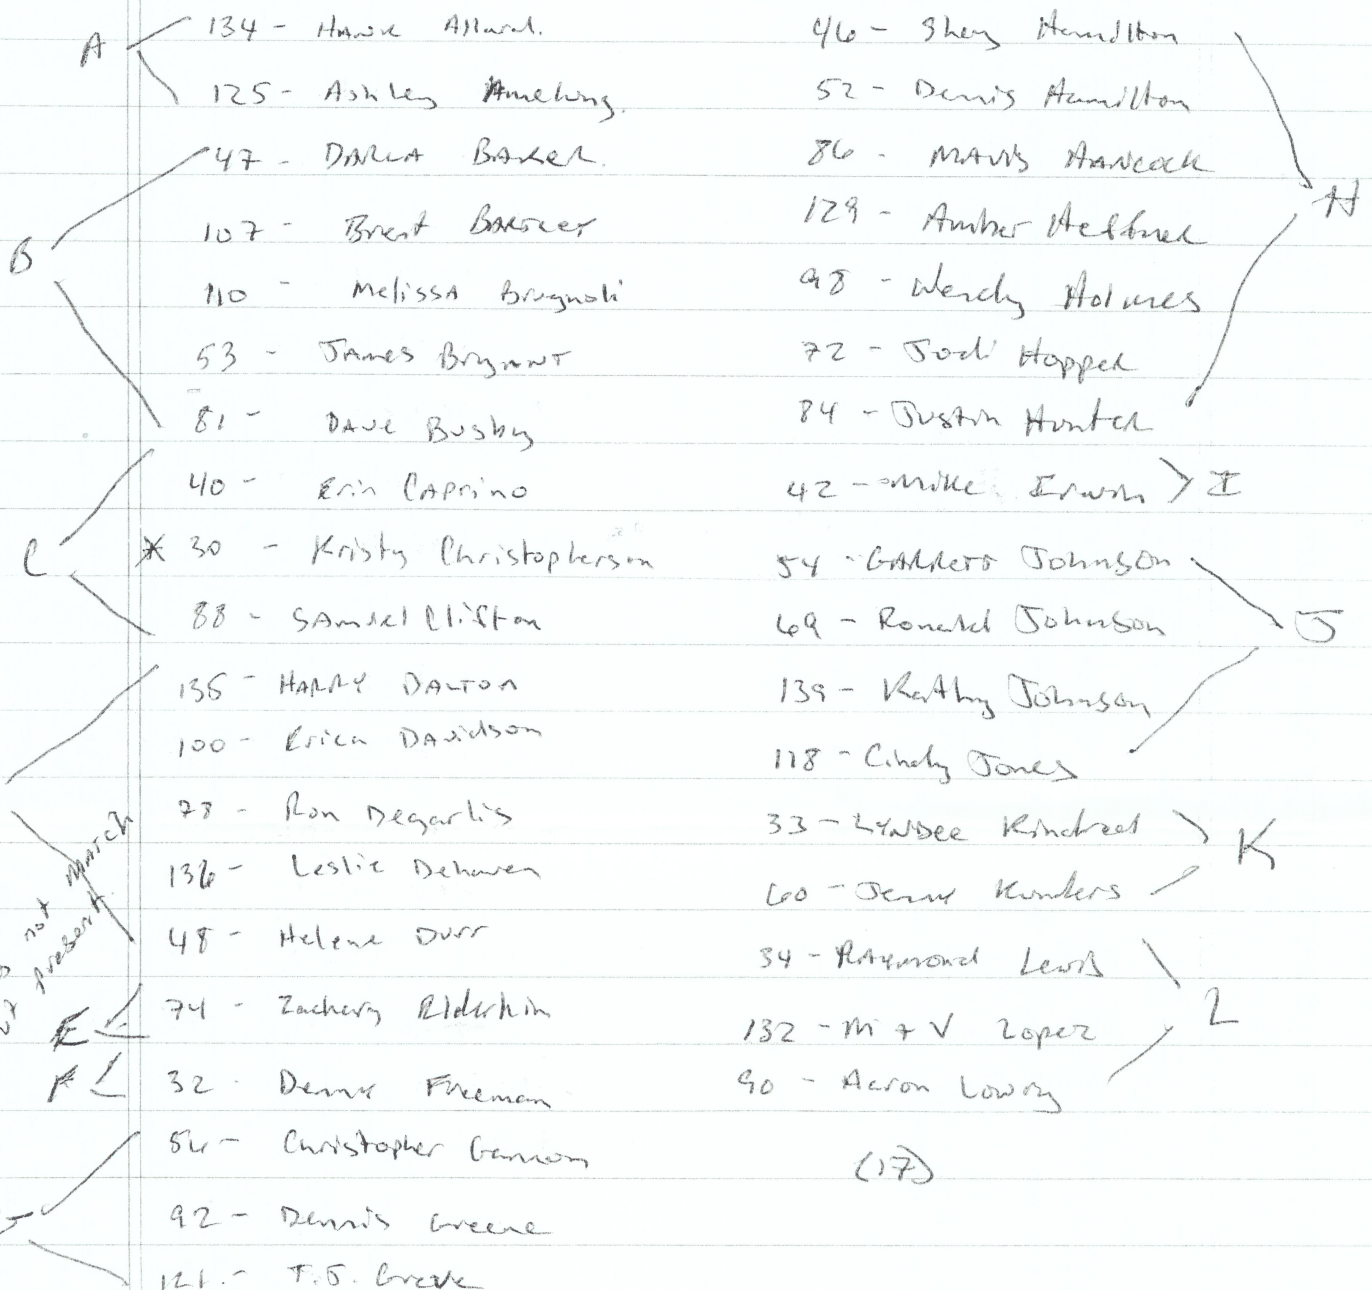 A
134 - HANK Allard.
125 - Ashley Amelung.
B
47 - DARLA BAKER.
107 - Brent BARTLEY
110 - Melissa Brugnoli
53 - JAMES BRYANT
81 - DAVE Busby
C
40 - Erin CAPRINO
* 30 - Kristy Christopherson
88 - SAMUEL Clifton
135 - HARRY DALTON
100 - Erica DAVIDSON
78 - Ron Degarlis
136 - Leslie Dehaven
48 - Helene Durr
not MATCH
present.
E
74 - Zachery Elderkin
F
32 - Denny Freeman
56 - Christopher Gannon
92 - Dennis Greene
121 - T.J. Greve
46 - Shey Hamilton
52 - Dennis Hamilton
86 - MAVIS HANCOCK
129 - Amber Hefbner
98 - Wendy Holmes
72 - Jodi Hopper
84 - Justin Hunter
H
42 - Mike Irwin
I
54 - GARRETT Johnson
69 - Ronald Johnson
139 - Kathy Johnson
118 - Cindy Jones
J
33 - LYNDEE Kindred
60 - Jenny Kunders
K
34 - RAYMOND Lewis
132 - M + V Lopez
90 - Aaron Lowry
L
(17)